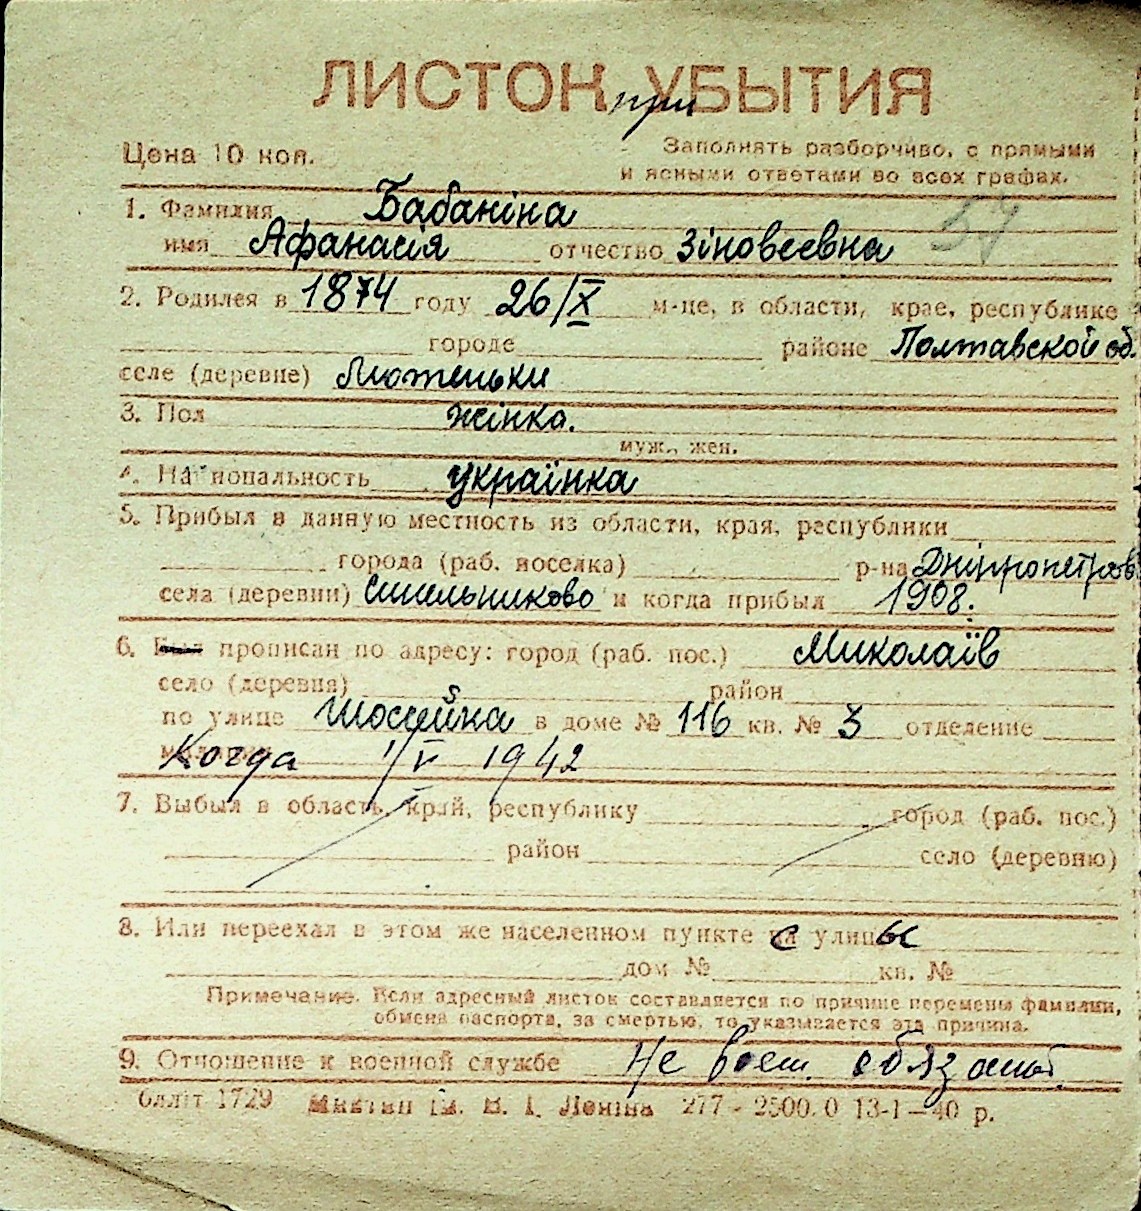 ЛИСТОК при УБЫТИЯ
Цена 10 коп.
Заполнять разборчиво, с прямыми
и ясными ответами во всех графах.
57
1. Фамилия Бабаніна
имя Афанасія отчество Зіновеевна
2. Родился в 1874 году 26/X м-це, в области, крае, республике
городе районе Полтавской об.
селе (деревне) Лютеньки
3. Пол жінка.
муж., жен.
4. Национальность українка
5. Прибыл в данную местность из области, края, республики
города (раб. поселка) р-на Дніпропетров
села (деревни) Синельниково и когда прибыл 1908.
6. Был прописан по адресу: город (раб. пос.) Миколаїв
село (деревня) район
по улице Шосейна в доме № 116 кв. № 3 отделение
Когда 1/V 1942
7. Выбыл в область, край, республику город (раб. пос.)
район село (деревню)
8. Или переехал в этом же населенном пункте с улицы
дом № кв. №
Примечание. Если адресный листок составляется по причине перемены фамилии,
обмена паспорта, за смертью, то указывается эта причина.
9. Отношение к военной службе Не воен. обязан.
1729 ім. В. І. Леніна 277 - 2500.0 13-I-40 р.